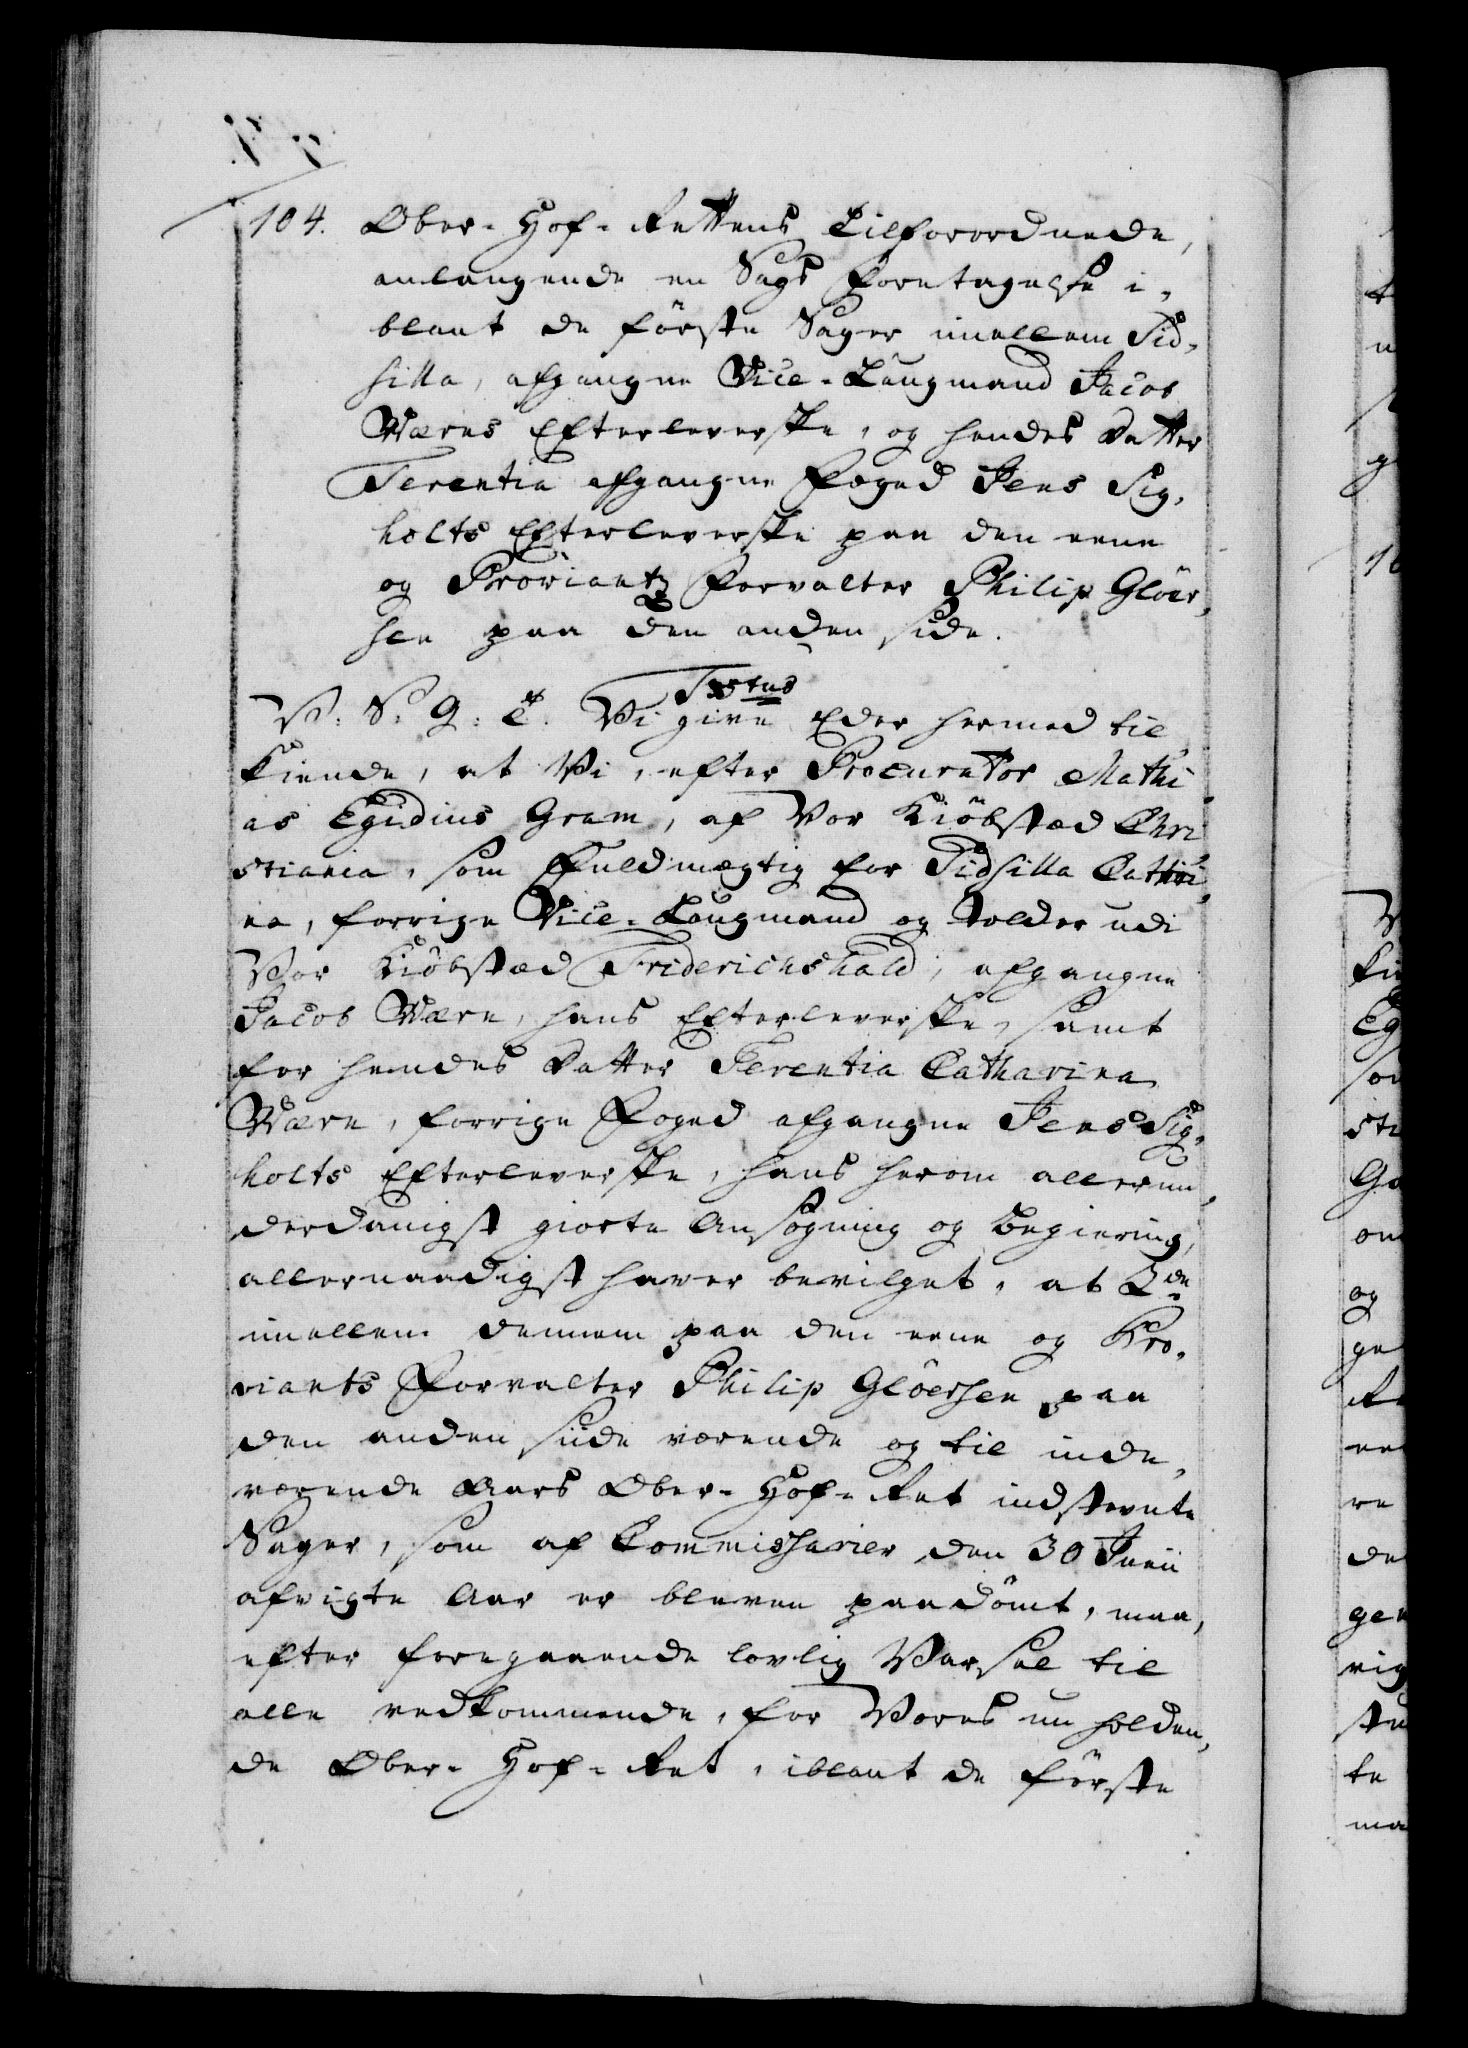 104. Ober-Hof-Rettens Tilforordnede,
anlangende en Sags Foretagelse i-
blant de förste Sager imellem Sid-
silla, afgangne Vice-Laugmand Jacob
Wærns Efterleverske, og hendes Datter
Terentia afgangne Foged Jens Sig-
holts Efterleverske paa den eene
og Proviantz Forvalter Philip Glöer-
sen paa den anden side.
Textus
V: S: G: T. Vi give Eder hermed til
kiende, at Vi, efter Procurator Mathi
as Egidius Gram, af Vor Kiöbstæd Chri
stiania, som Fuldmægtig for Sidsilla Cathri
na, forrige Vice-Laugmand og Tolder udi
Vor Kiöbstæd Friderichshald, afgangne
Jacob Wærn, hans Efterleverske, samt
for hendes Datter Terentia Catharina
Wærn, forrige Foged afgangne Jens Sig-
holts Efterleverske, hans herom allerun-
derdanigst giorte Ansøgning og Begiering,
allernaadigst haver bevilget, at
imellem dennem paa den eene og Pro-
viants Forvalter Philip Glöersen paa
den anden siide værende og til inde-
værende Aars Ober-Hof-Ret indstevnte
Sager, som af Commissarier den 30 Junii
afvigte Aar er bleven paadömt, maa,
efter foregaaende lovlig Varsel til
alle vedkommende, for Vores nu holden-
de Ober-Hof-Ret, iblant de förste